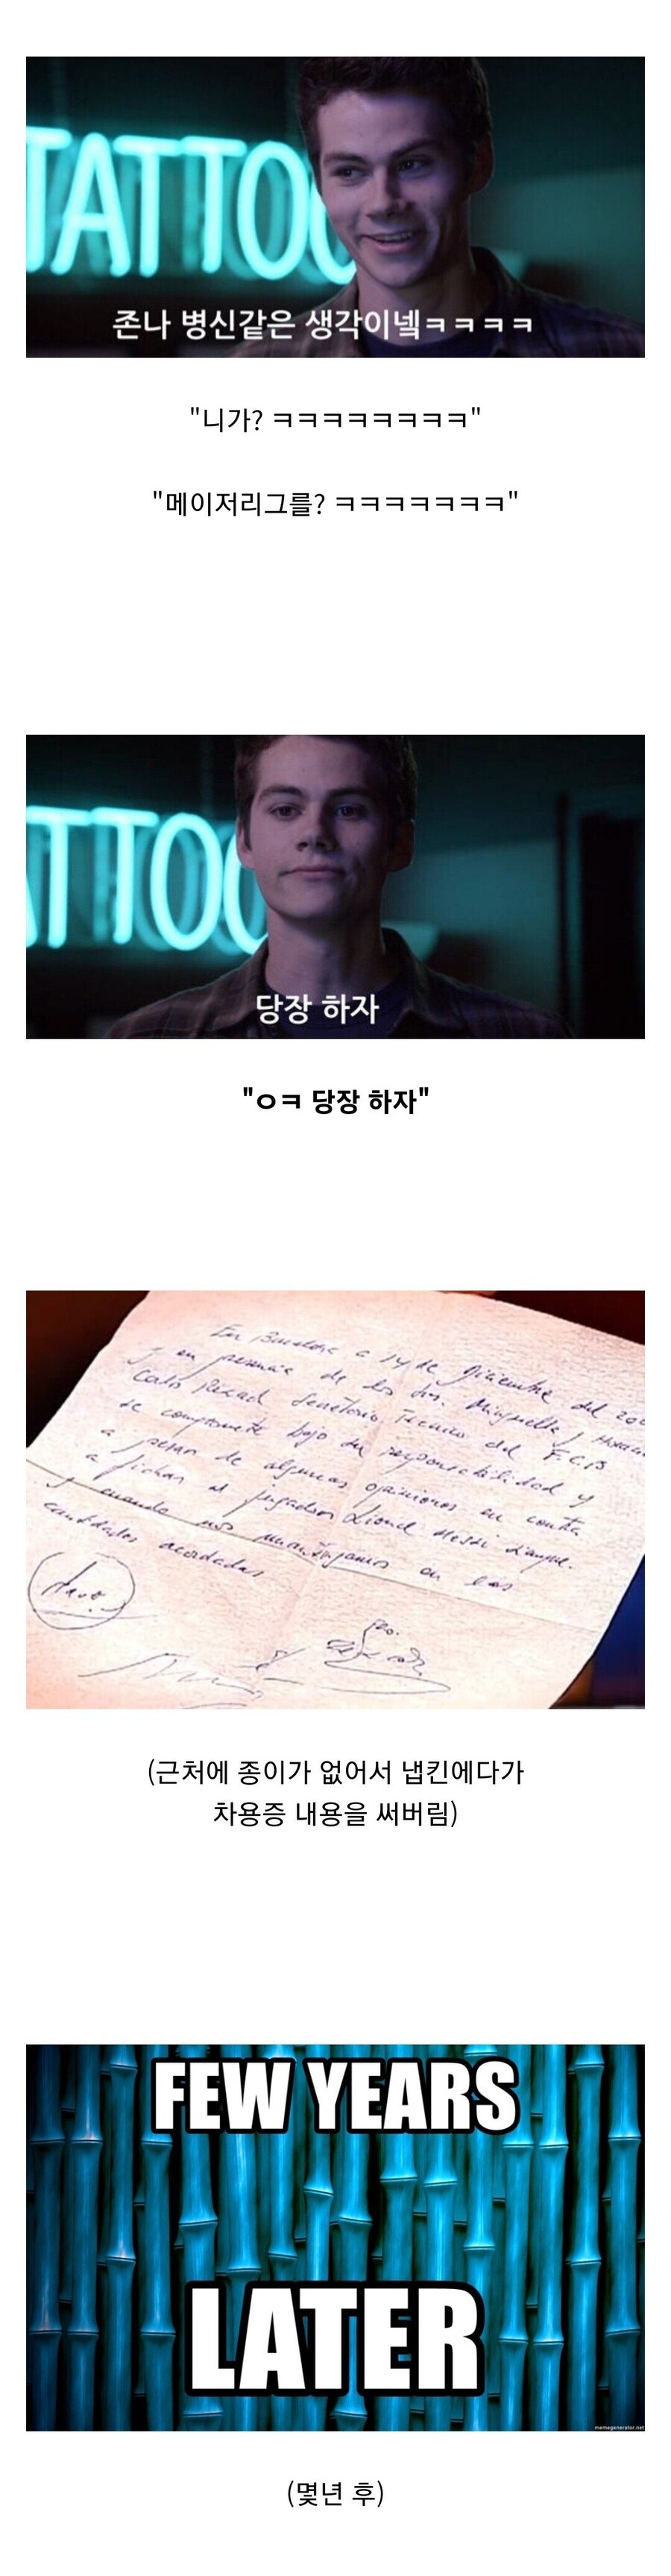 TATTOO
존나 병신같은 생각이넼ㅋㅋㅋㅋ
"니가? ㅋㅋㅋㅋㅋㅋㅋㅋ"
"메이저리그를? ㅋㅋㅋㅋㅋㅋㅋ"
ATTOO
당장 하자
"ㅇㅋ 당장 하자"
a 14 de Diciembre del 200
y en presencia de los Srs. Minguella y
Carlo Rexach Secretario Técnico del F.C.B
se compromete bajo su responsabilidad y
a pesar de algunas opiniones en contra
a fichar al jugador Lionel Messi siempre.
y cuando nos mantengamos en las
cantidades acordadas
(근처에 종이가 없어서 냅킨에다가
차용증 내용을 써버림)
FEW YEARS
LATER
memegenerator.net
(몇년 후)